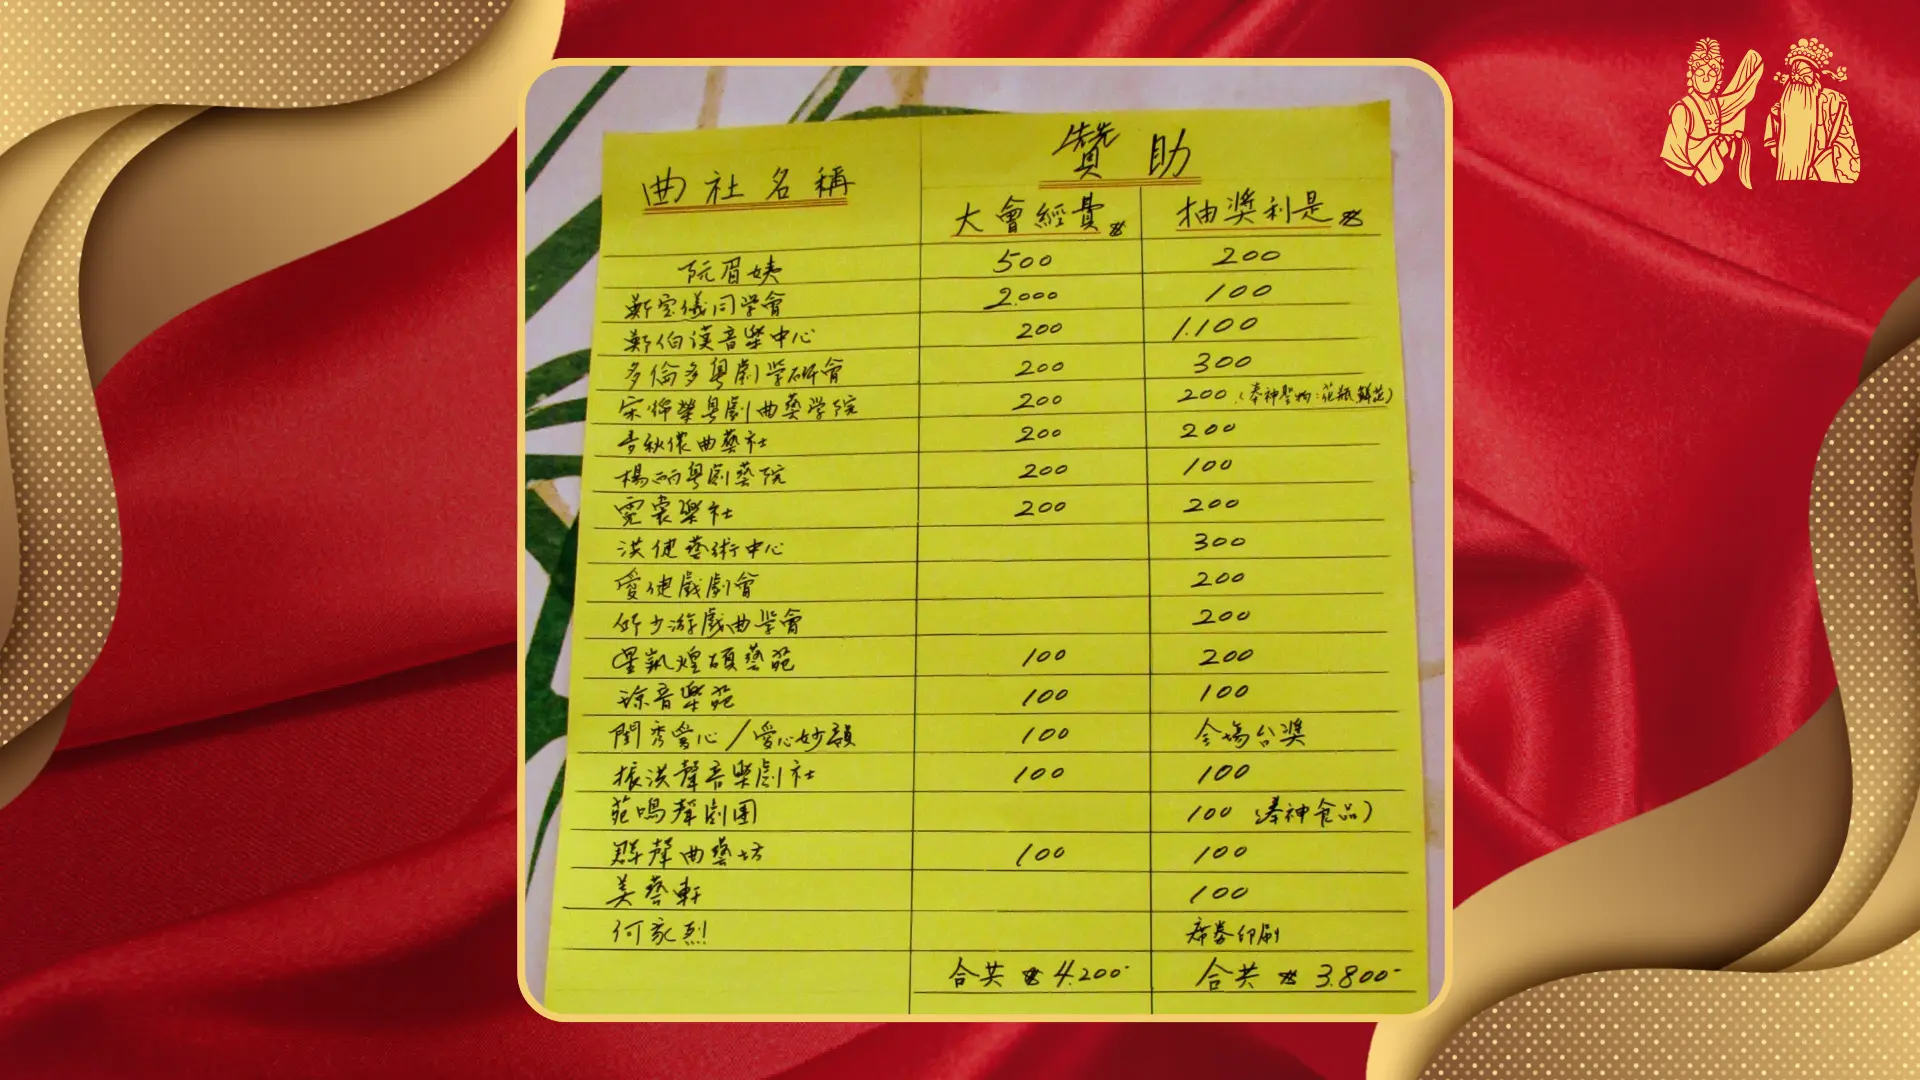 曲社名稱 贊助
大會經費$ 抽獎利是$
阮眉姨 500 200
鄭宝儀同学會 2,000 100
鄭伯漢音樂中心 200 1,100
多倫多粵劇学研會 200 300
宋錦榮粵劇曲藝学院 200 200 (奉神聖物:花瓶鮮花)
春秋儂曲藝社 200 200
楊丽粵劇藝院 200 100
霓裳樂社 200 200
洪健藝術中心 300
愛健戲劇會 200
少游戲曲学會 200
星凱煌碩藝苑 100 200
琼音樂苑 100 100
閨秀愛心/愛心妙韻 100 全場台獎
振洪聲音樂劇社 100 100
苑鳴聲劇团 100 (奉神食品)
群聲曲藝坊 100 100
美藝軒 100
何家烈 席券印刷
合共$4,200- 合共$3,800-